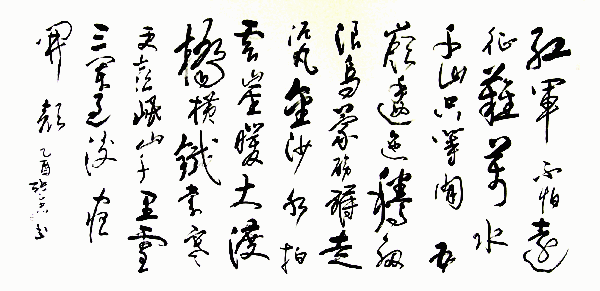 红軍不怕遠
征難萬水
千山只等闲五
嶺逶迤騰细
浪烏蒙磅礴走
泥丸金沙水拍
雲崖暖大渡
橋横鐵索寒
更喜岷山千里雪
三軍过後尽
開颜
乙酉